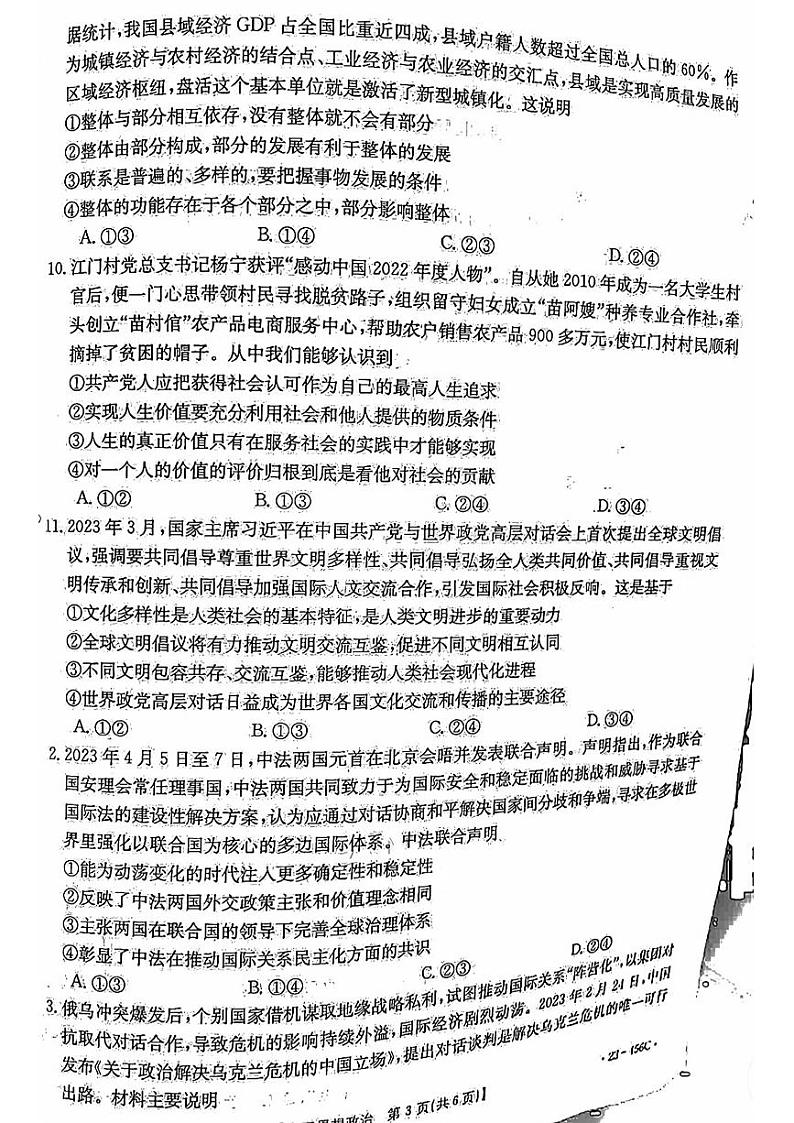 据统计,我国县域经济 GDP 占全国比重近四成,县域户籍人数超过全国总人口的 60%。作
为城镇经济与农村经济的结合点、工业经济与农业经济的交汇点,县域是实现高质量发展的
区域经济枢纽,盘活这个基本单位就是激活了新型城镇化。这说明
①整体与部分相互依存,没有整体就不会有部分
②整体由部分构成,部分的发展有利于整体的发展
③联系是普遍的、多样的,要把握事物发展的条件
④整体的功能存在于各个部分之中,部分影响整体
A. ①③ B. ①④ C. ②③ D. ②④
10. 江门村党总支书记杨宁获评“感动中国 2022 年度人物”。自从她 2010 年成为一名大学生村
官后,便一门心思带领村民寻找脱贫路子,组织留守妇女成立“苗阿嫂”种养专业合作社,牵
头创立“苗村倌”农产品电商服务中心,帮助农户销售农产品 900 多万元,使江门村村民顺利
摘掉了贫困的帽子。从中我们能够认识到
①共产党人应把获得社会认可作为自己的最高人生追求
②实现人生价值要充分利用社会和他人提供的物质条件
③人生的真正价值只有在服务社会的实践中才能够实现
④对一个人的价值的评价归根到底是看他对社会的贡献
A. ①② B. ①③ C. ②④ D. ③④
11. 2023 年 3 月,国家主席习近平在中国共产党与世界政党高层对话会上首次提出全球文明倡
议,强调要共同倡导尊重世界文明多样性、共同倡导弘扬全人类共同价值、共同倡导重视文
明传承和创新、共同倡导加强国际人文交流合作,引发国际社会积极反响。这是基于
①文化多样性是人类社会的基本特征,是人类文明进步的重要动力
②全球文明倡议将有力推动文明交流互鉴,促进不同文明相互认同
③不同文明包容共存、交流互鉴,能够推动人类社会现代化进程
④世界政党高层对话日益成为世界各国文化交流和传播的主要途径
A. ①② B. ①③ C. ②④ D. ③④
2. 2023 年 4 月 5 日至 7 日,中法两国元首在北京会晤并发表联合声明。声明指出,作为联合
国安理会常任理事国,中法两国共同致力于为国际安全和稳定面临的挑战和威胁寻求基于
国际法的建设性解决方案,认为应通过对话协商和平解决国家间分歧和争端,寻求在多极世
界里强化以联合国为核心的多边国际体系。中法联合声明
①能为动荡变化的时代注入更多确定性和稳定性
②反映了中法两国外交政策主张和价值理念相同
③主张两国在联合国的领导下完善全球治理体系
④彰显了中法在推动国际关系民主化方面的共识
A. ①③ B. ①④ C. ②③ D. ②④
3. 俄乌冲突爆发后,个别国家借机谋取地缘战略私利,试图推动国际关系“阵营化”,以集团对
抗取代对话合作,导致危机的影响持续外溢,国际经济剧烈动荡。2023 年 2 月 24 日,中国
发布《关于政治解决乌克兰危机的中国立场》,提出对话谈判是解决乌克兰危机的唯一可行
出路。材料主要说明
思想政治 第 3 页(共 6 页)】
· ZJ-156C ·